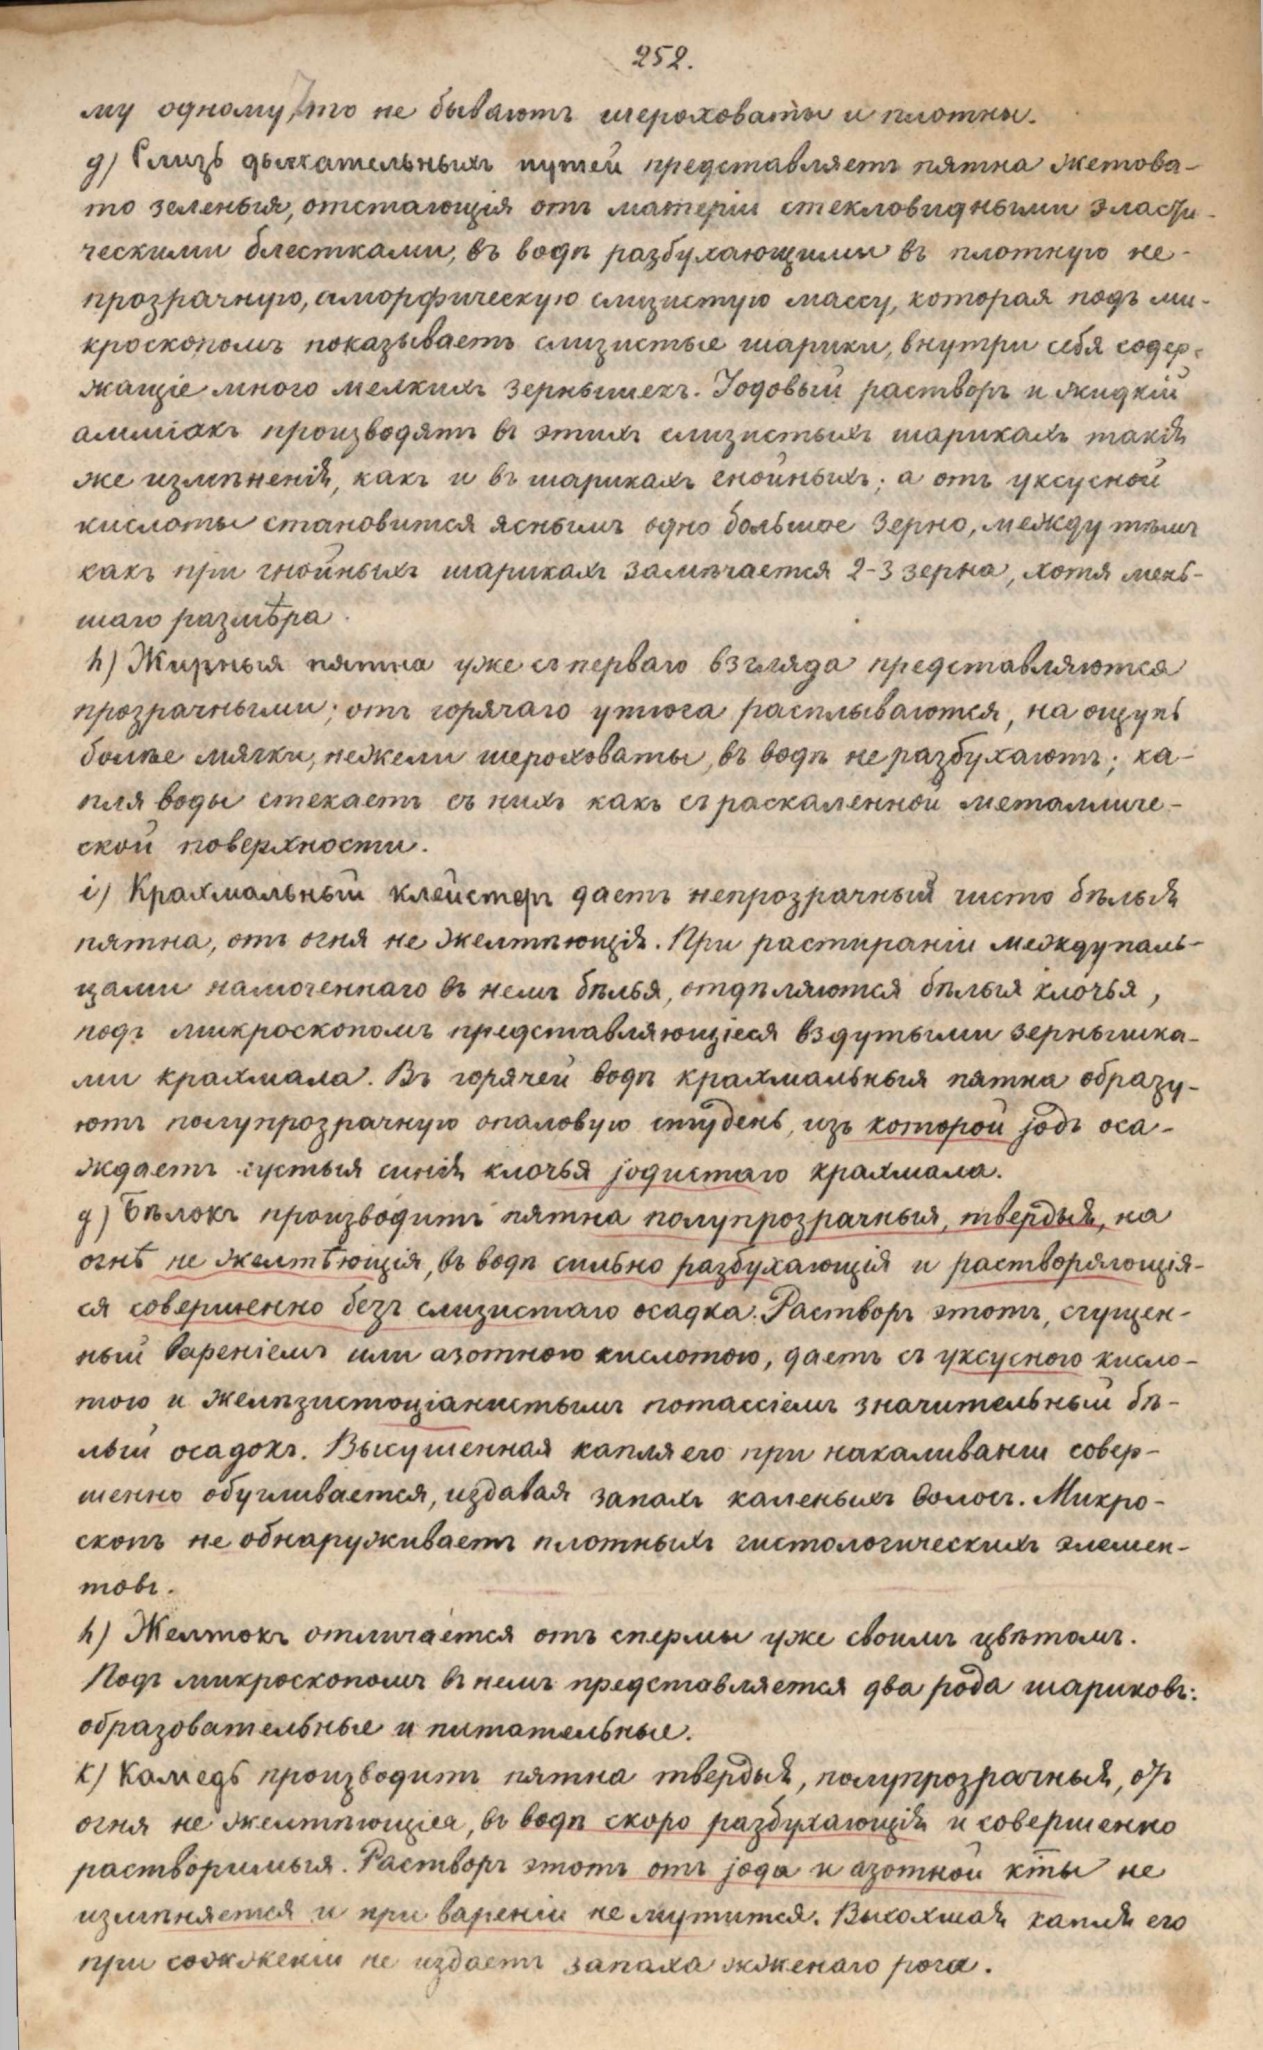 252.
му одному, что не бываютъ шероховаты и плотны.
g) Слизь дыхательныхъ путей представляетъ пятна желтова-
то зеленыя, отстающія отъ матеріи стекловидными эласти-
ческими блестками, въ водѣ разбухающими въ плотную не-
прозрачную, аморфическую слизистую массу, которая подъ ми-
кроскопомъ показываетъ слизистые шарики, внутри себя содер-
жащіе много мелкихъ зернышекъ. Іодовый растворъ и жидкій
амміакъ производятъ въ этихъ слизистыхъ шарикахъ такія
же измѣненія, какъ и въ шарикахъ гнойныхъ; а отъ уксусной
кислоты становится яснымъ одно большое зерно, между тѣмъ
какъ при гнойныхъ шарикахъ замѣчается 2-3 зерна, хотя мень-
шаго размѣра.
h) Жирныя пятна уже съ перваго взгляда представляются
прозрачными; отъ горячаго утюга расплываются, на ощупь
болѣе мягки, нежели шероховаты, въ водѣ не разбухаютъ; ка-
пля воды стекаетъ съ нихъ какъ съ раскаленной металличе-
ской поверхности.
i) Крахмальный клейстеръ даетъ непрозрачный чисто бѣлыя
пятна, отъ огня не желтѣющія. При растираніи между паль-
цами намоченнаго въ немъ бѣлья, отдѣляются бѣлыя клочья,
подъ микроскопомъ представляющіеся вздутыми зернышка-
ми крахмала. Въ горячей водѣ крахмальныя пятна образу-
ютъ полупрозрачную опаловую студень, изъ которой jодъ оса-
ждаетъ густыя синія клочья jодистаго крахмала.
g) Бѣлокъ производитъ пятна полупрозрачныя, твердыя, на
огнѣ не желтѣющія, въ водѣ сильно разбухающія и растворяющія-
ся совершенно безъ слизистаго осадка. Растворъ этотъ, сгущен-
ный вареніемъ или азотною кислотою, даетъ съ уксусною кисло-
тою и желѣзистоціанистымъ потассіемъ значительный бѣ-
лый осадокъ. Высушенная капля его при накаливаніи совер-
шенно обугливается, издавая запахъ каленыхъ волосъ. Микро-
скопъ не обнаруживаетъ плотныхъ гистологическихъ элемен-
товъ.
h) Желтокъ отличается отъ спермы уже своимъ цвѣтомъ.
Подъ микроскопомъ въ немъ представляется два рода шариковъ:
образовательные и питательные.
k) Камедь производитъ пятна твердыя, полупрозрачныя, отъ
огня не желтѣющіеа, въ водѣ скоро разбухающія и совершенно
растворимыя. Растворъ этотъ отъ jода и азотной к͞ты не
измѣняется и при вареніи не мутится. Высохшая капля его
при сожженіи не издаетъ запаха жженаго рога.